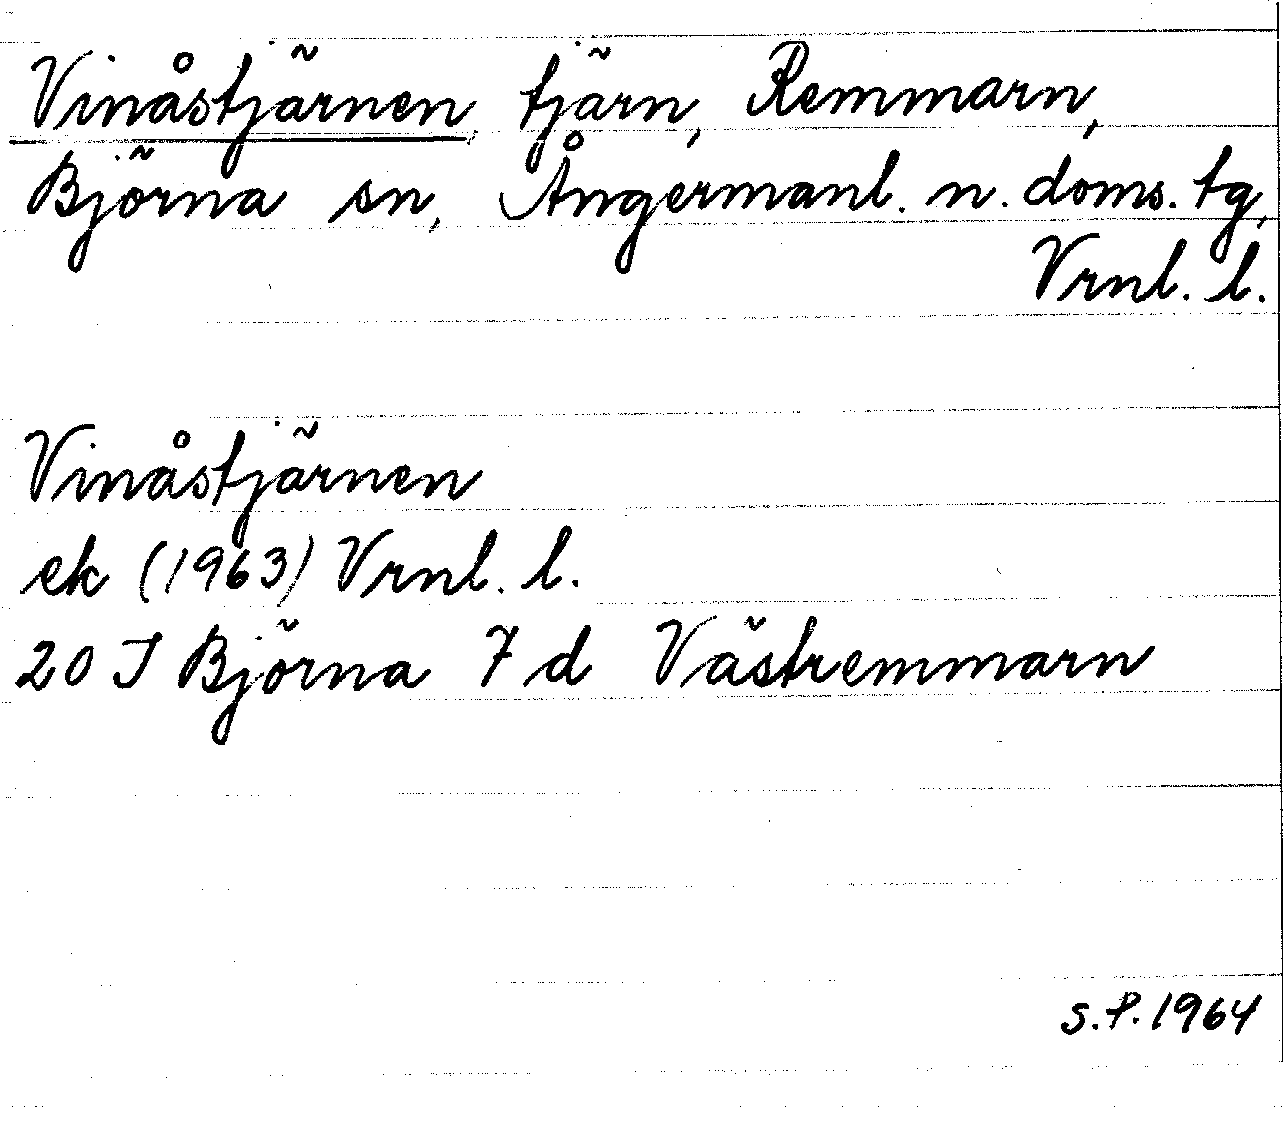 Vinåstjärnen, tjärn, Remmarn,
Björna sn, Ångermanl. n. doms. tg,
Vrnl. l.
Vinåstjärnen
ek (1963) Vrnl. l.
20 I Björna 7 d Västremmarn
S.P. 1964